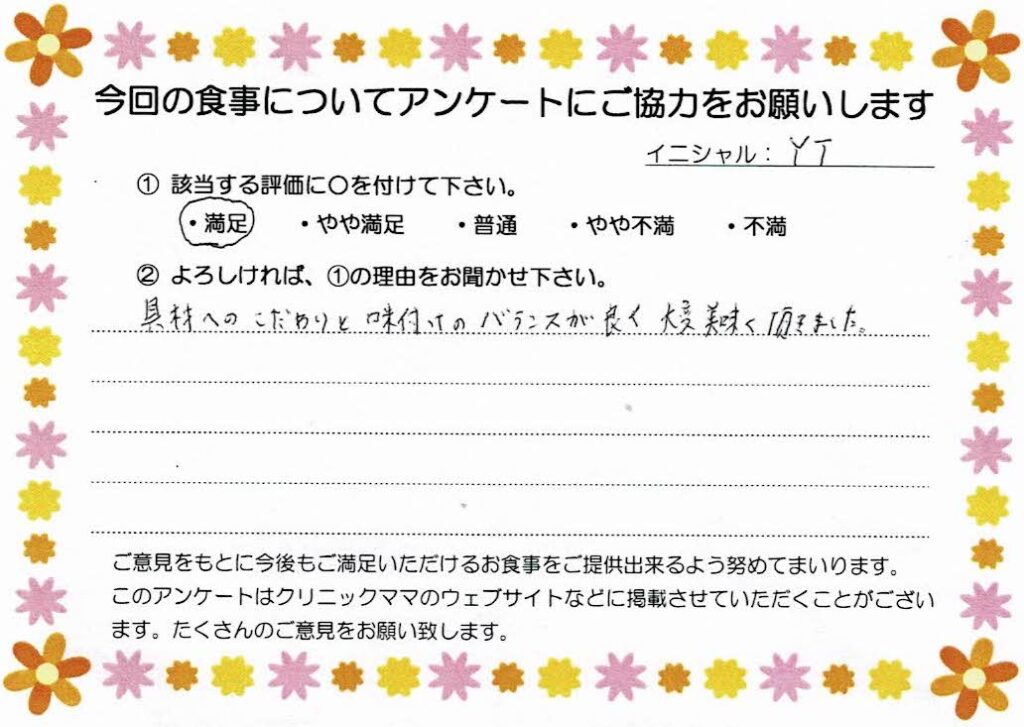 今回の食事についてアンケートにご協力をお願いします
イニシャル：YT
① 該当する評価に○を付けて下さい。
・満足 ・やや満足 ・普通 ・やや不満 ・不満
② よろしければ、①の理由をお聞かせ下さい。
具材へのこだわりと味付けのバランスが良く大変美味く頂きました。
ご意見をもとに今後もご満足いただけるお食事をご提供出来るよう努めてまいります。
このアンケートはクリニックママのウェブサイトなどに掲載させていただくことがござい
ます。たくさんのご意見をお願い致します。